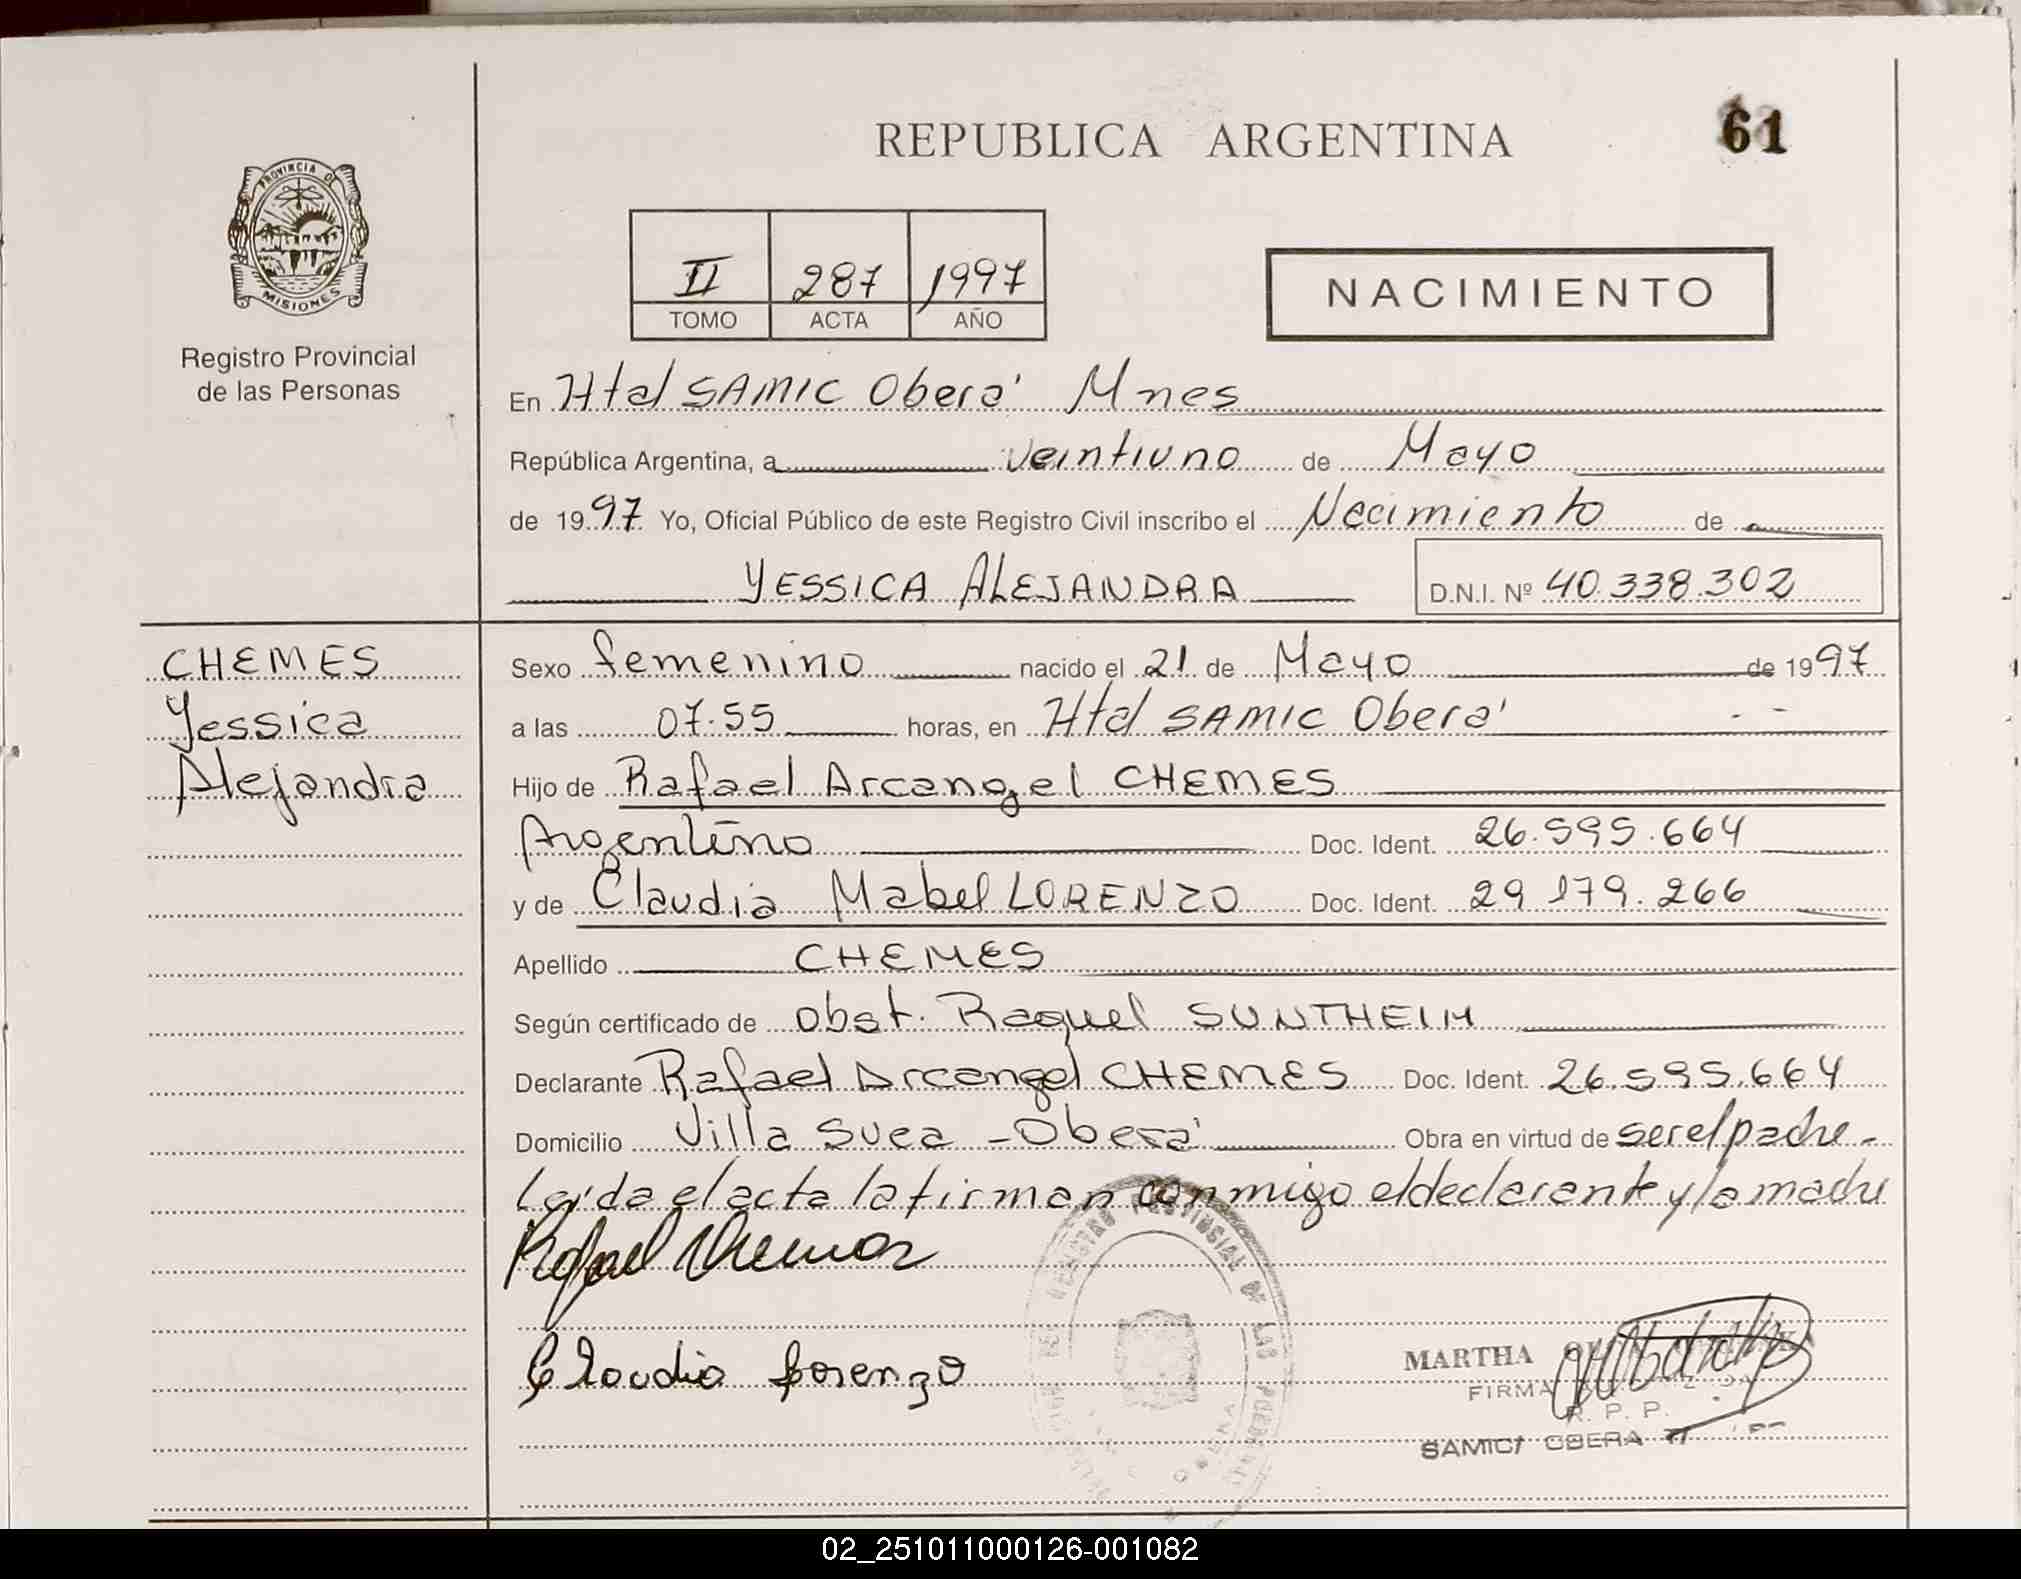 REPUBLICA ARGENTINA
61
PROVINCIA DE
MISIONES
Registro Provincial
de las Personas
II 287 1997
TOMO ACTA AÑO
NACIMIENTO
En Htal SAMIC Oberá Mnes
República Argentina, a veintiuno de Mayo
de 1997 Yo, Oficial Público de este Registro Civil inscribo el Nacimiento de
YESSICA ALEJANDRA D.N.I. Nº 40.338.302
CHEMES
Yessica
Alejandra
Sexo femenino nacido el 21 de Mayo de 1997
a las 07.55 horas, en Htal SAMIC Oberá
Hijo de Rafael Arcangel CHEMES
Argentino Doc. Ident. 26.595.664
y de Claudia Mabel LORENZO Doc. Ident. 29 179.266
Apellido CHEMES
Según certificado de Obst. Raquel SUNTHEIM
Declarante Rafael Arcangel CHEMES Doc. Ident. 26.595.664
Domicilio Villa Svea - Oberá Obra en virtud de ser el padre -
Leída el acta la firman conmigo el declarante y la madre
Rafael Chemes
Claudia Lorenzo
MARTHA
FIRMA
R. P. P.
SAMIC OBERA
02_251011000126-001082